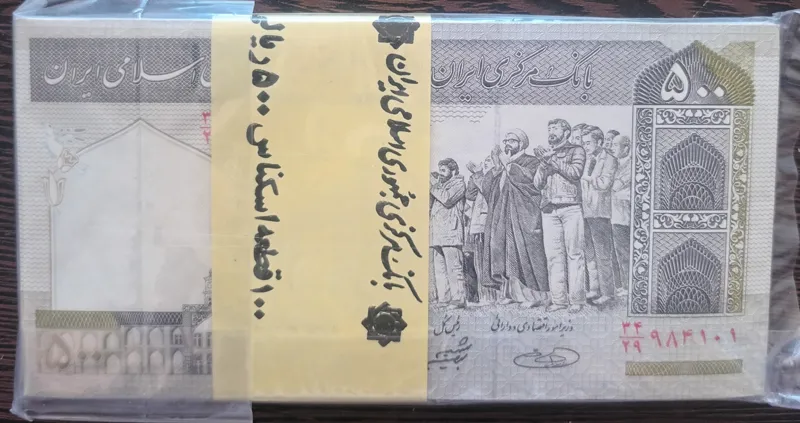 بانک مرکزی ایران
۵۰۰
ی اسلامی ایران
بانک مرکزی جمهوری اسلامی ایران
۱۰۰ قطعه اسکناس ۵۰۰ ریالی
وزیر امور اقتصادی و دارائی
رئیس کل
۳۴
۲۹
۹۸۴۱۰۱
۳
۲
۵